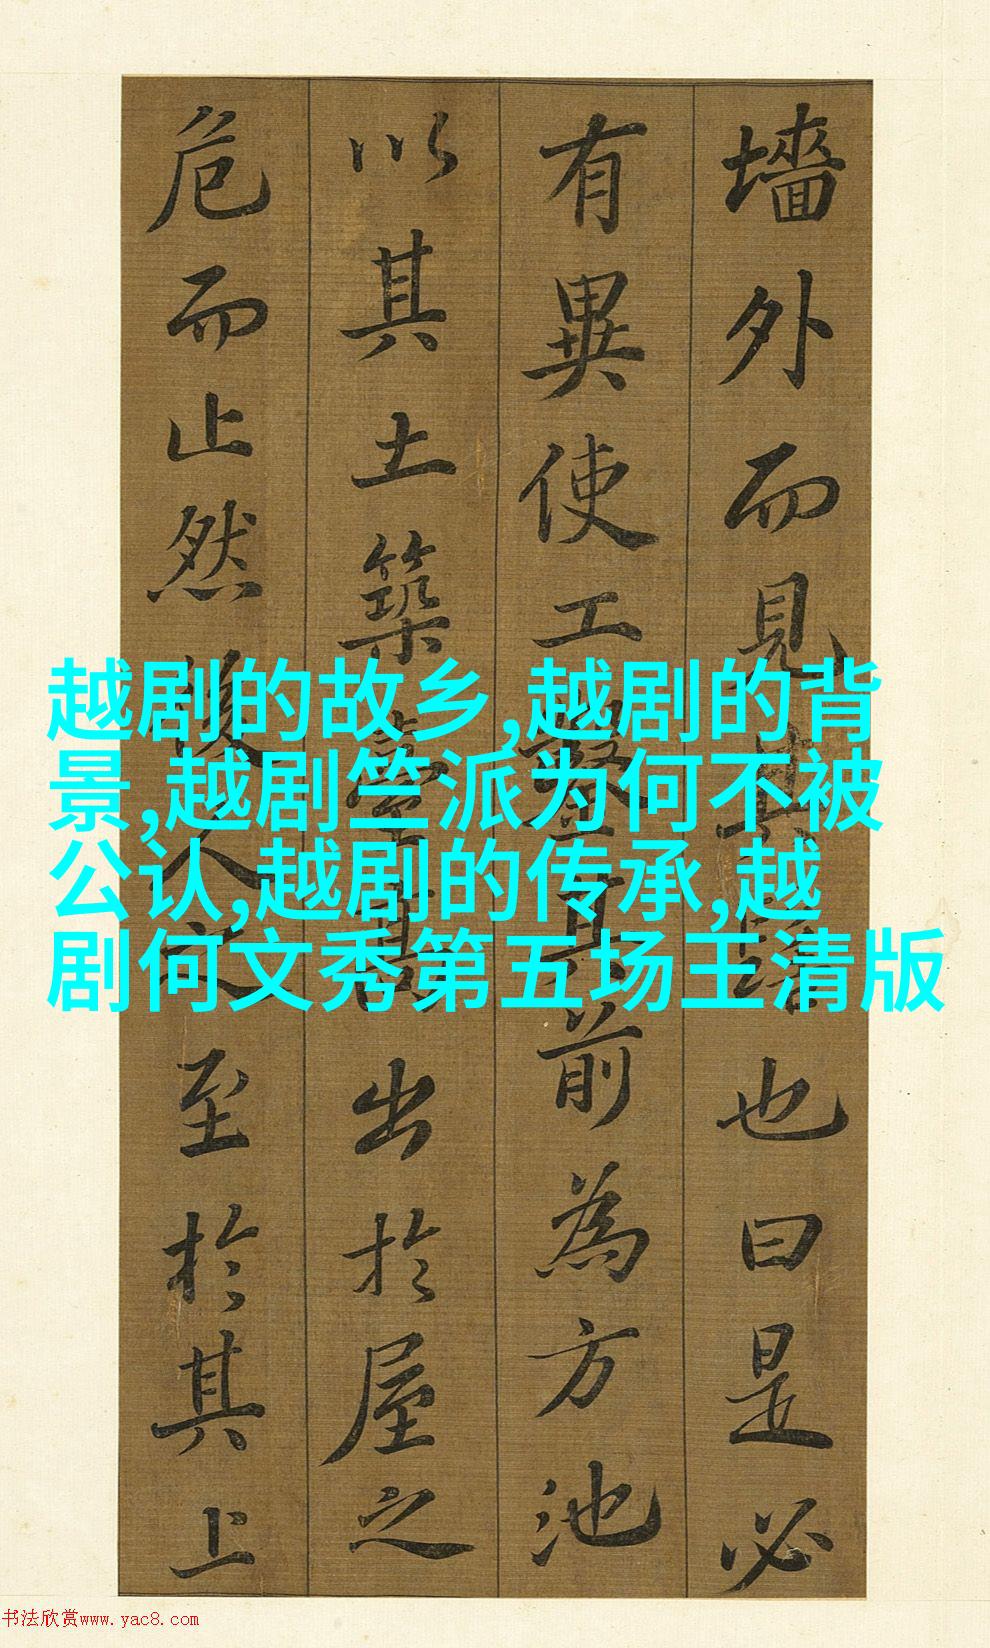 墻外而見其髻也曰是必
有異使工鑿其前為方池
以其土築臺高出於屋之
危而止然後人之至於其上
越剧的故乡,越剧的背
景,越剧竺派为何不被
公认,越剧的传承,越
剧何文秀第五场王清版
书法欣赏www.yac8.com